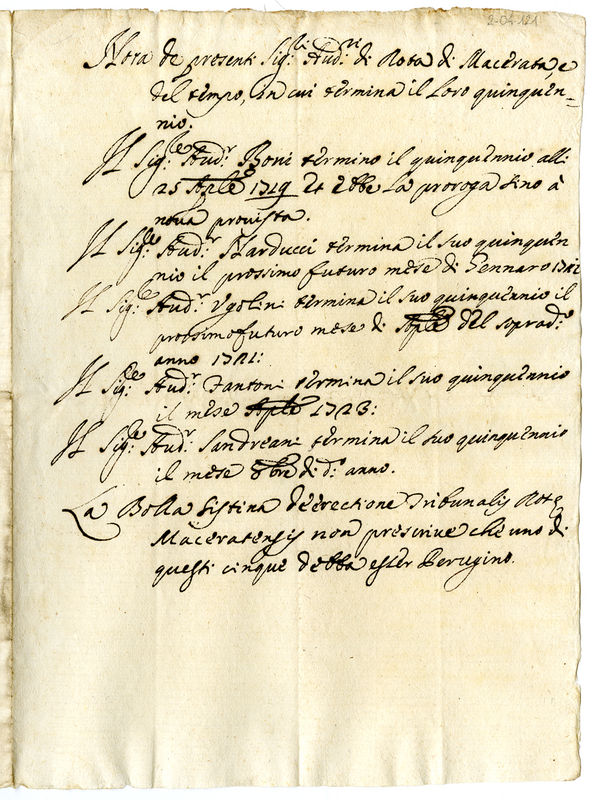 2-04-121
Nota de presenti Sig:ri Aud:ri di Rota di Macerata, e
del tempo, in cui termina il loro quinquen=
nio.
Il Sig:re Aud:r Boni termino il quinquennio alli
25 Aple 1719 et ebbe la proroga sino à
nova provista.
Il Sig:re Aud:r Narducci termina il suo quinquen
nio il prossimo futuro mese di Gennaro 1721
Il Sig:re Aud:r Ugolini termina il suo quinquennio il
prossimo futuro mese di Aple del soprad:o
anno 1721:
Il Sig:re Aud:r Fantoni termina il suo quinquennio
il mese Aple 1723:
Il Sig:re Aud:r Sandreani termina il suo quinquennio
il mese 8bre di d:o anno.
La Bolla Sistina de erectione Tribunalis Rotę
Maceratensis non prescrive che uno di
questi cinque debba esser Perugino.